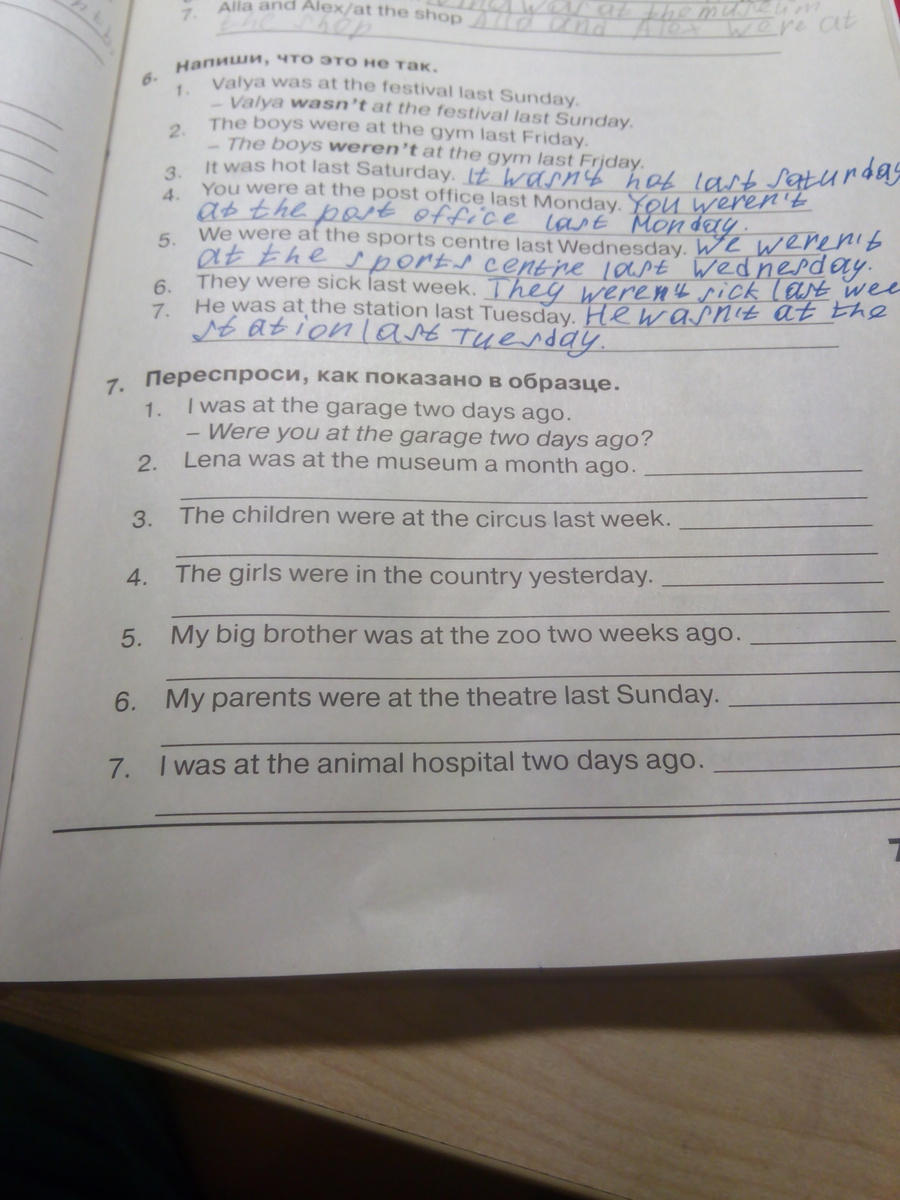 7. Alla and Alex/at the shop Alla and Alex were at
the shop
6. Напиши, что это не так.
1. Valya was at the festival last Sunday.
– Valya wasn't at the festival last Sunday.
2. The boys were at the gym last Friday.
– The boys weren't at the gym last Friday.
3. It was hot last Saturday. It wasn't hot last saturday
4. You were at the post office last Monday. You weren't
at the post office last Monday.
5. We were at the sports centre last Wednesday. We weren't
at the sports centre last Wednesday.
6. They were sick last week. They weren't sick last wee
7. He was at the station last Tuesday. He wasn't at the
station last Tuesday.
7. Переспроси, как показано в образце.
1. I was at the garage two days ago.
– Were you at the garage two days ago?
2. Lena was at the museum a month ago.
3. The children were at the circus last week.
4. The girls were in the country yesterday.
5. My big brother was at the zoo two weeks ago.
6. My parents were at the theatre last Sunday.
7. I was at the animal hospital two days ago.
7